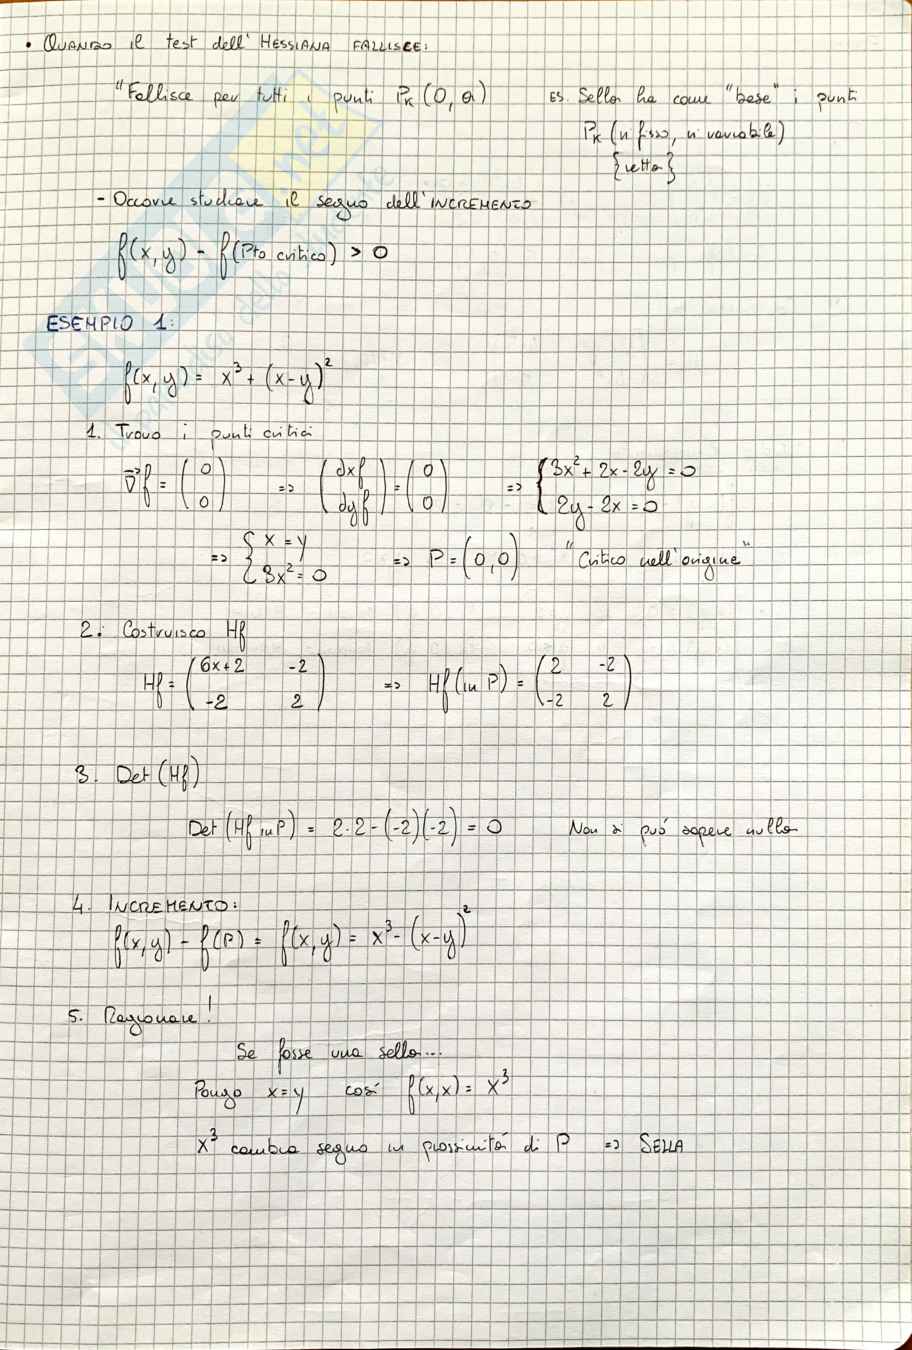 • QUANDO il test dell'HESSIANA FALLISCE:
"Fallisce per tutti i punti Pk (0, a) ES. Sella ha come "base" i punti
Pk (n fisso, n variabile)
{retta}
- Occorre studiare il segno dell'INCREMENTO
f(x,y) - f(Pto critico) > 0
ESEMPIO 1:
f(x,y) = x³ + (x-y)²
1. Trovo i punti critici
∇f = (0 0) => (∂xf ∂yf) = (0 0) => { 3x² + 2x - 2y = 0
2y - 2x = 0
=> { x = y
3x² = 0 => P = (0,0) "Critico nell'origine"
2. Costruisco Hf
Hf = (6x+2 -2
-2 2) => Hf (in P) = (2 -2
-2 2)
3. Det (Hf)
Det (Hf in P) = 2·2 - (-2)(-2) = 0 Non si può sapere nulla
4. INCREMENTO:
f(x,y) - f(P) = f(x,y) = x³ - (x-y)²
5. Ragionare!
Se fosse una sella...
Pongo x=y così f(x,x) = x³
x³ cambia segno in prossimità di P => SELLA